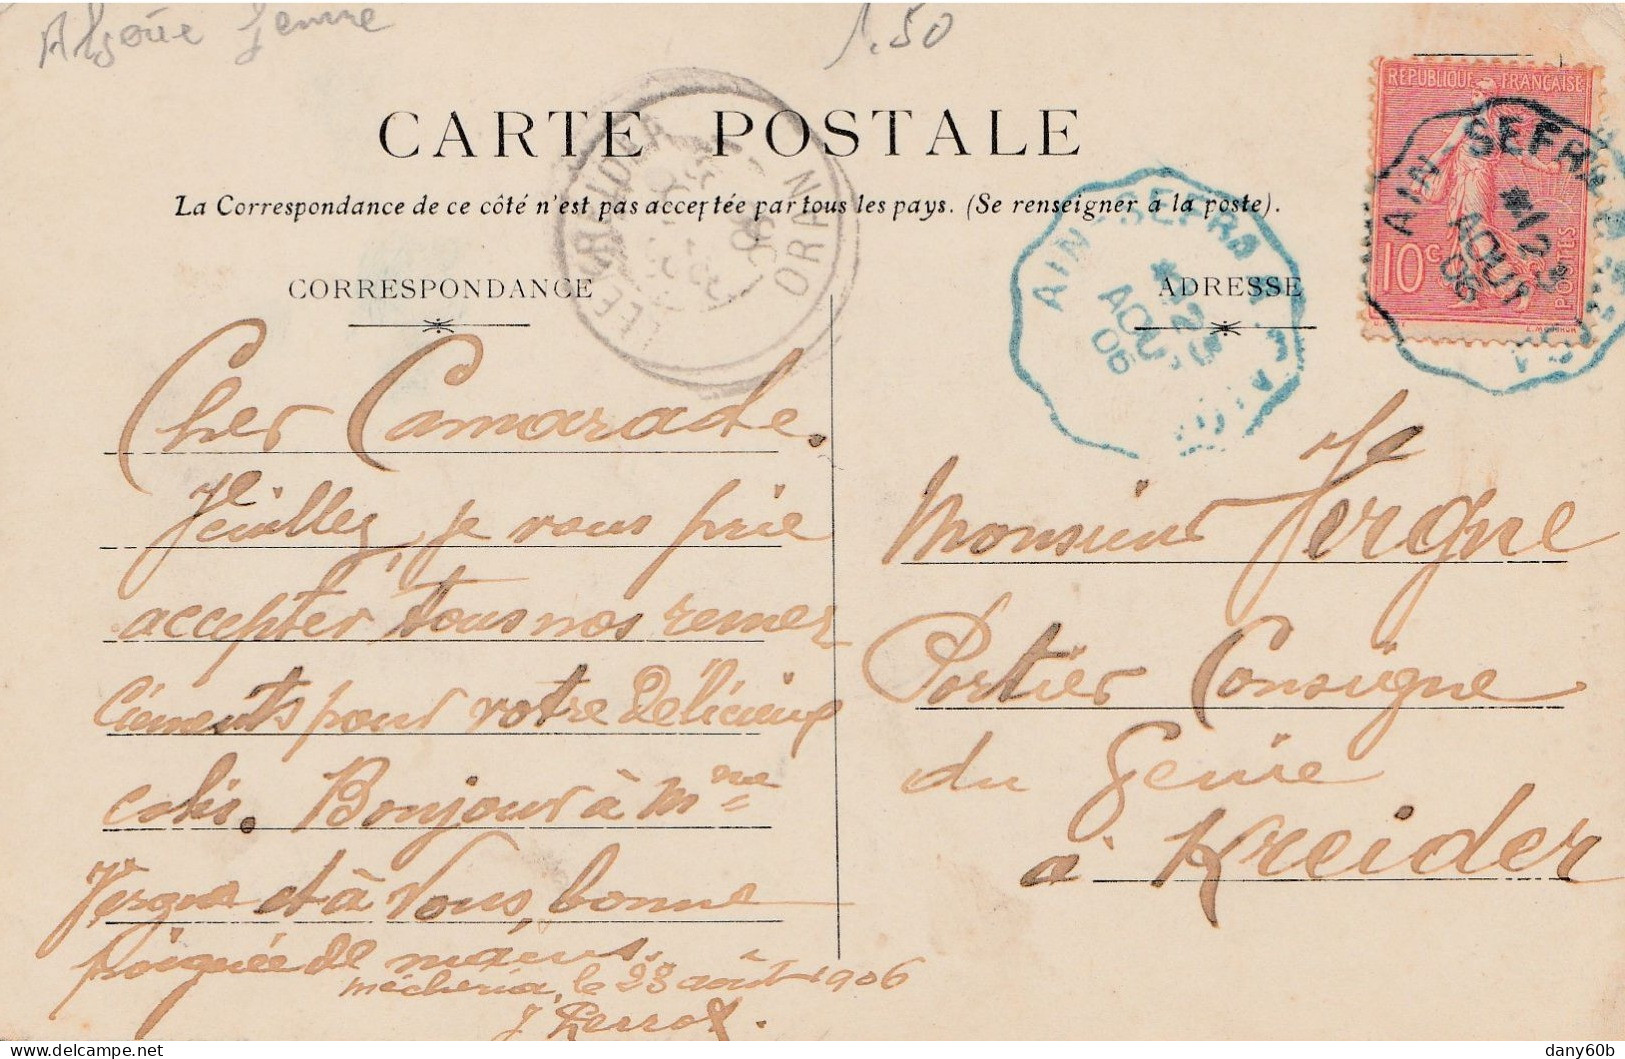 Algérie femme
1.50
CARTE POSTALE
La Correspondance de ce côté n'est pas acceptée par tous les pays. (Se renseigner à la poste).
CORRESPONDANCE
Cher Camarade.
Veuillez, je vous prie
accepter tous nos remer
ciements pour votre Délicieux
colis. Bonjour à Mme
Vergne et à Vous, bonne
poignée de mains.
Mécheria, le 23 août 1906
J Perrot.
ADRESSE
Monsieur Vergne
Portier Consigne
du Génie
à Kreider
RÉPUBLIQUE FRANÇAISE
10c
POSTES
AIN-SEFRA
12
AOUT
06
AIN-SEFRA
AOUT
06
ORAN
06
dany60b